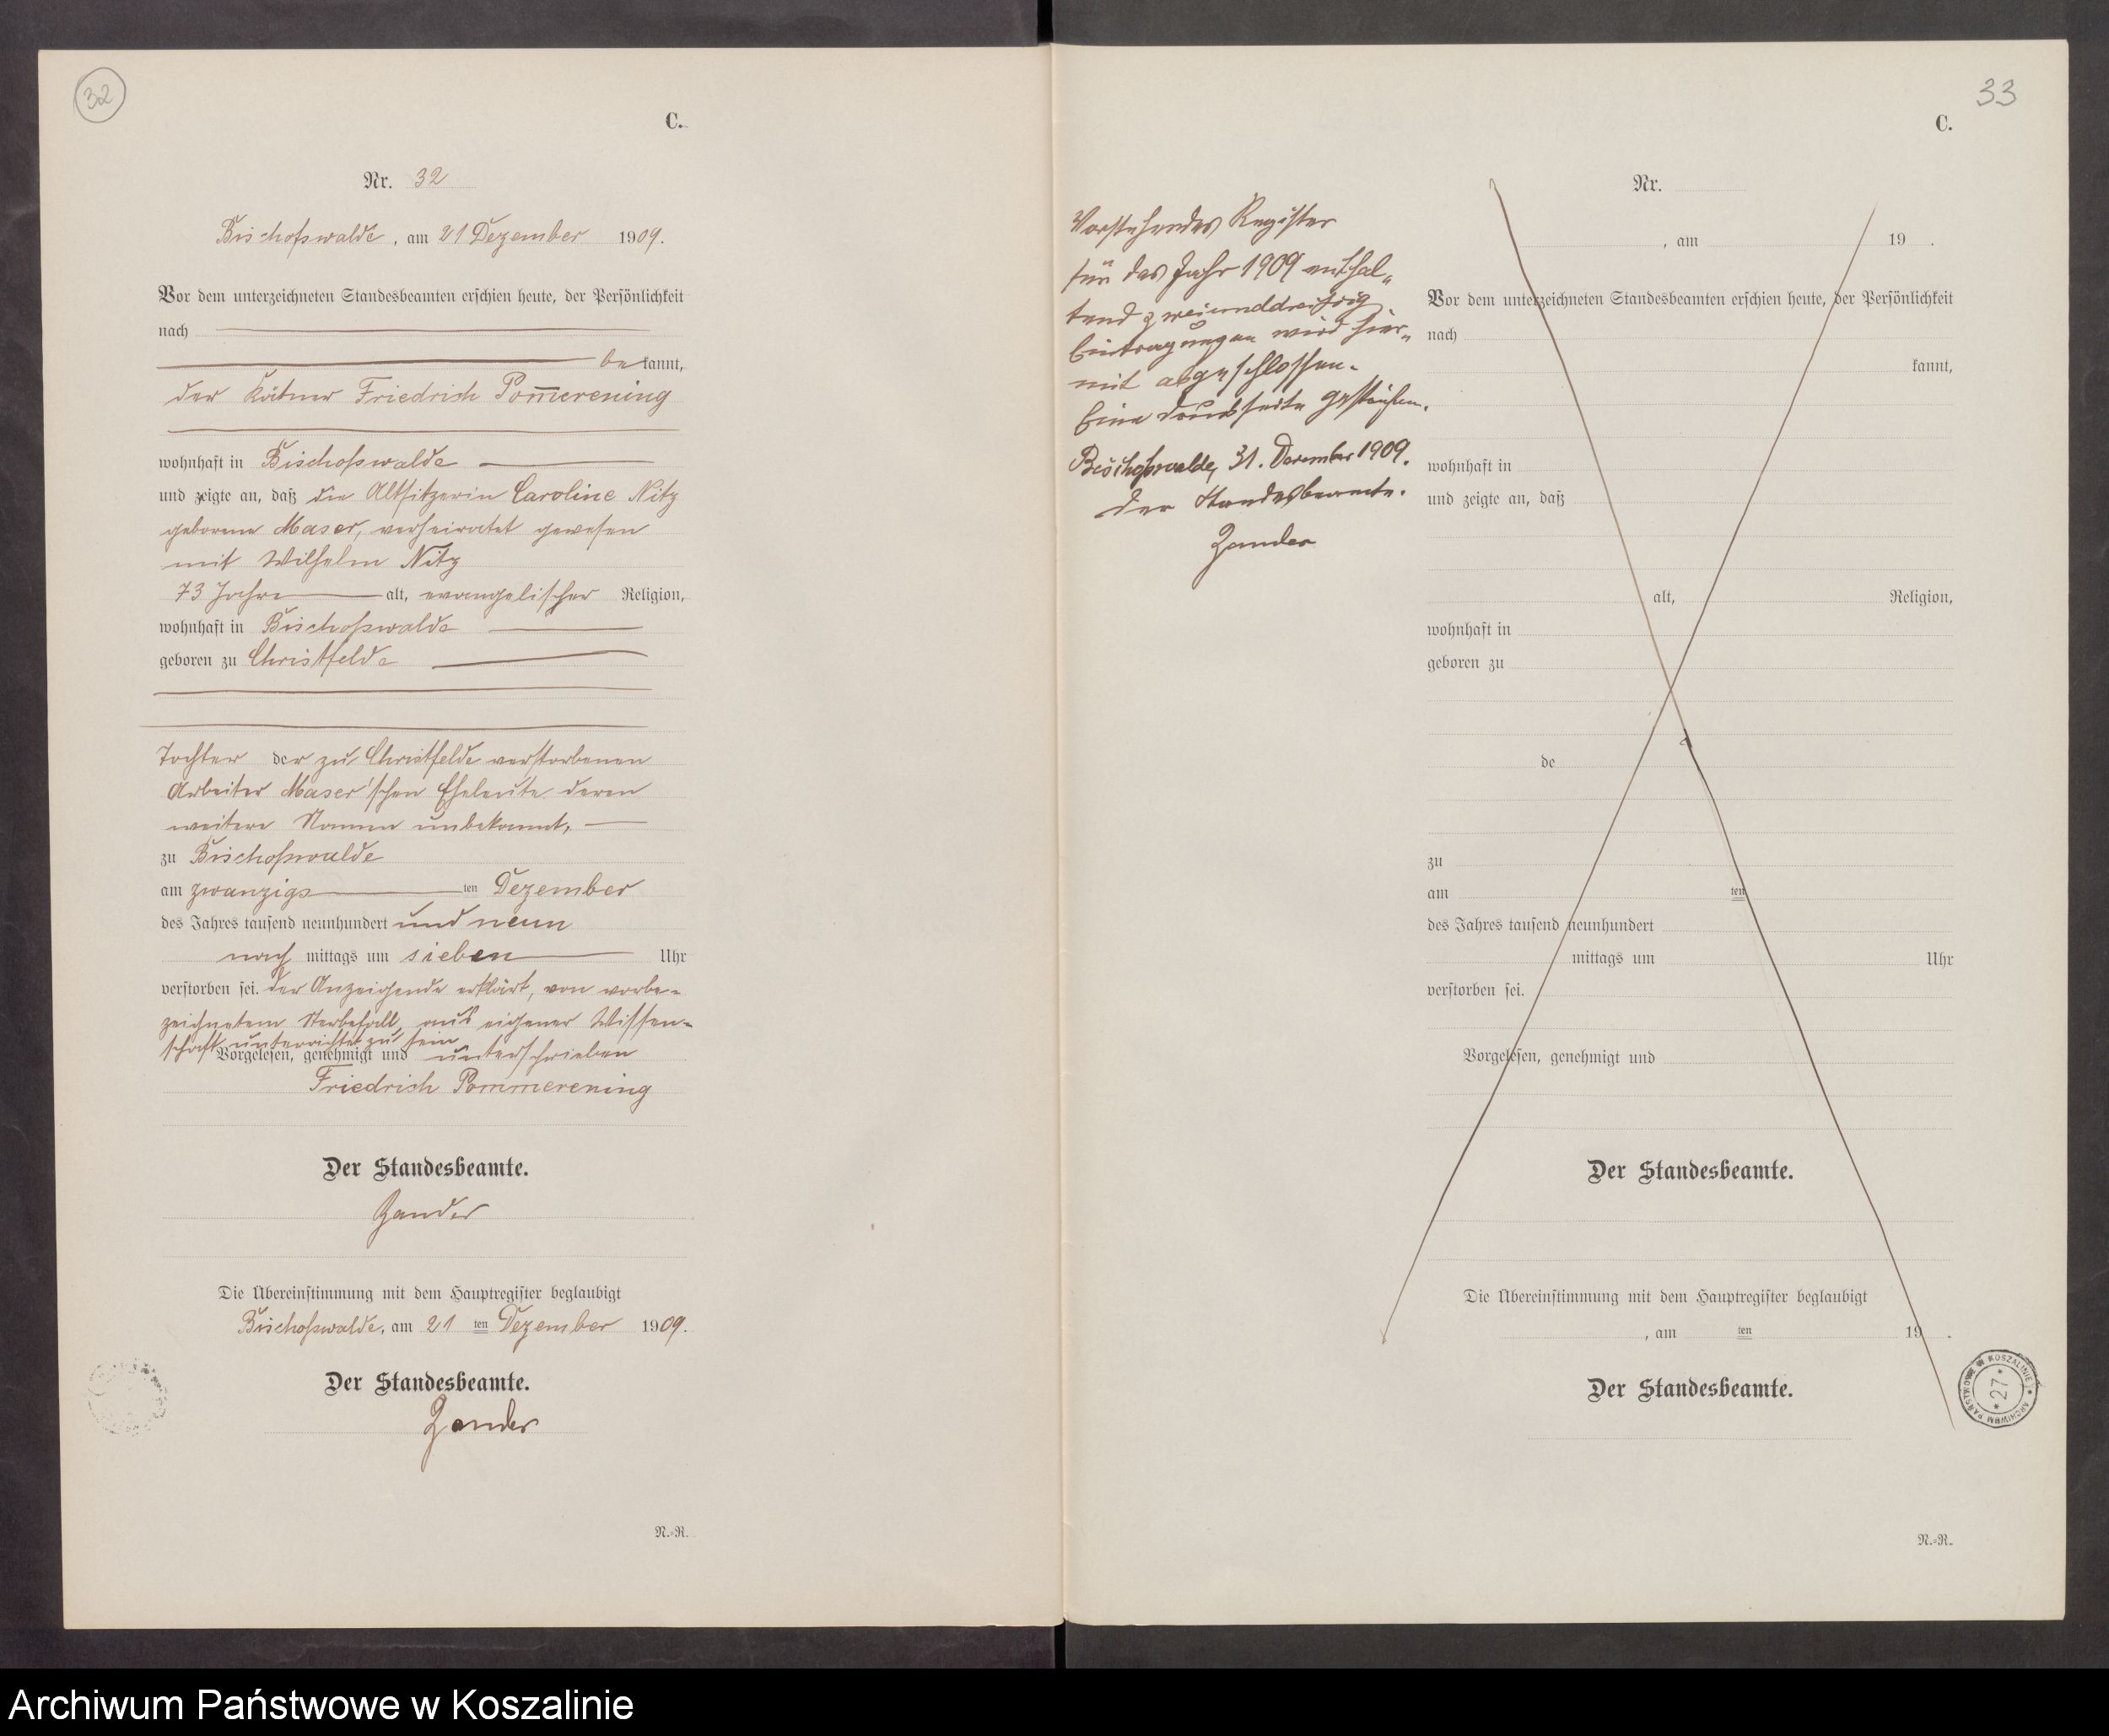 32
C.
Nr. 32
Bischofswalde, am 21 Dezember 1909.
Vor dem unterzeichneten Standesbeamten erschien heute, der Persönlichkeit
nach
be kannt,
der Kätner Friedrich Pom̅erening
wohnhaft in Bischofswalde
und zeigte an, daß die Altsitzerin Caroline Nitz
geborene Maser, verheiratet gewesen
mit Wilhelm Nitz
73 Jahre alt, evangelischer Religion,
wohnhaft in Bischofswalde
geboren zu Christfelde
Tochter der zu Christfelde verstorbenen
Arbeiter Maser'schen Eheleute deren
weitere Namen unbekannt,
zu Bischofswalde
am zwanzigs ten Dezember
des Jahres tausend neunhundert und neun
nach mittags um sieben Uhr
verstorben sei. Der Anzeigende erklärt, von vorbe-
zeichnetem Sterbefall, aus eigener Wissen-
schaft unterrichtet zu sein
Vorgelesen, genehmigt und unterschrieben
Friedrich Pommerening
Der Standesbeamte.
Zander
Die Übereinstimmung mit dem Hauptregister beglaubigt
Bischofswalde, am 21 ten Dezember 1909.
Der Standesbeamte.
Zander
N.-R.
33
C.
Vorstehendes Register
für das Jahr 1909 enthal-
tend zweiunddreißig
Eintragungen wird hier-
mit abgeschlossen.
Eine Druckseite gestrichen.
Bischofswalde, 31. Dezember 1909.
Der Standesbeamte.
Zander
Nr.
, am 19 .
Vor dem unterzeichneten Standesbeamten erschien heute, der Persönlichkeit
nach
kannt,
wohnhaft in
und zeigte an, daß
alt, Religion,
wohnhaft in
geboren zu
de
zu
am ten
des Jahres tausend neunhundert
mittags um Uhr
verstorben sei.
Vorgelesen, genehmigt und
Der Standesbeamte.
Die Übereinstimmung mit dem Hauptregister beglaubigt
, am ten 19 .
Der Standesbeamte.
ARCHIWUM PAŃSTWOWE W KOSZALINIE
* 27 *
N.-R.
Archiwum Państwowe w Koszalinie